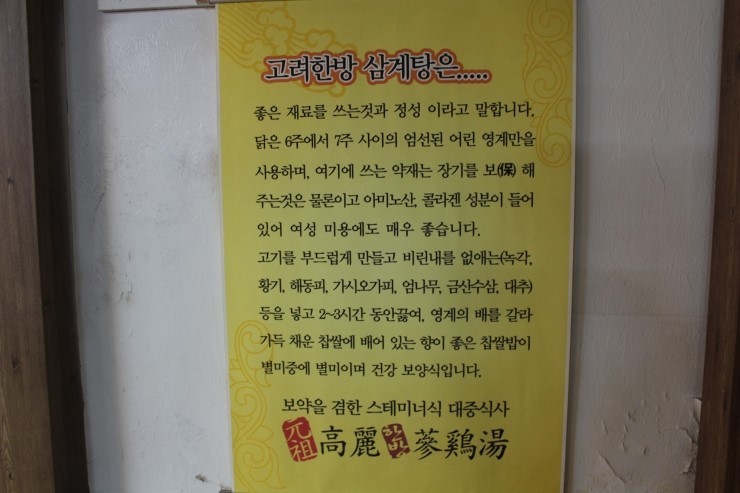 고려한방 삼계탕은.....
좋은 재료를 쓰는것과 정성 이라고 말합니다.
닭은 6주에서 7주 사이의 엄선된 어린 영계만을
사용하며, 여기에 쓰는 약재는 장기를 보(保) 해
주는것은 물론이고 아미노산, 콜라겐 성분이 들어
있어 여성 미용에도 매우 좋습니다.
고기를 부드럽게 만들고 비린내를 없애는(녹각,
황기, 해동피, 가시오가피, 엄나무, 금산수삼, 대추)
등을 넣고 2~3시간 동안끓여, 영계의 배를 갈라
가득 채운 찹쌀에 배어 있는 향이 좋은 찹쌀밥이
별미중에 별미이며 건강 보양식입니다.
보약을 겸한 스테미너식 대중식사
元祖 高麗 한방 蔘鷄湯